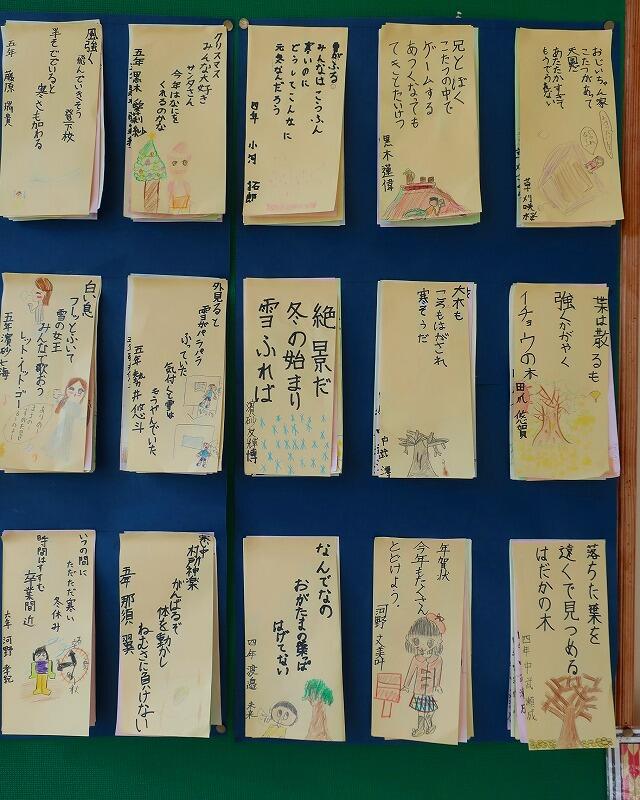 おじいちゃん家
こたつがあって
大風だ
あたたかすぎて
もうでれない
草刈 咲桜
兄とぼく
こたつの中で
ゲームする
あつくなっても
できごとだいけつ
黒木 蓮偉
雪がふる。
みんなはこうふん
寒いのに
どうしてこんなに
元気なんだろう
四年 小河 拓郎
クリスマス
みんな大好き
サンタさん
今年はなにを
くれるのかな
五年 黒木
風強く
飛んでいきそう
登下校
半そででいると
寒さも加わる
五年 藤原 瑞貴
葉は散るも
強くかがやく
イチョウの木
田爪 悠賀
大木も
ころもはがされ
寒そうだ
中武 澪
絶景だ
冬の始まり
雪ふれば
濱砂 友輝博
外見ると
雪がパラパラ
ふっていた
気付くと雪は
もうやんでいた
五年 勢井 悠斗
白い息
フーッとふいて
雪の女王
みんなで歌おう
レットイットゴー
五年 濱砂 七海
落ちた葉を
遠くで見つめる
はだかの木
四年 中武 顕成
年賀状
今年もたくさん
とどけよう、
河野 文美叶
なんでなの
おがたまの葉は
はげてない
四年 渡邉 未来
寒い中
村所神楽
がんばるぞ
体を動かし
ねむさに負けない
五年 那須 翼
いつの間に
ただただ寒い
冬休み
時間はすすむ
卒業間近
六年 河野 孝記